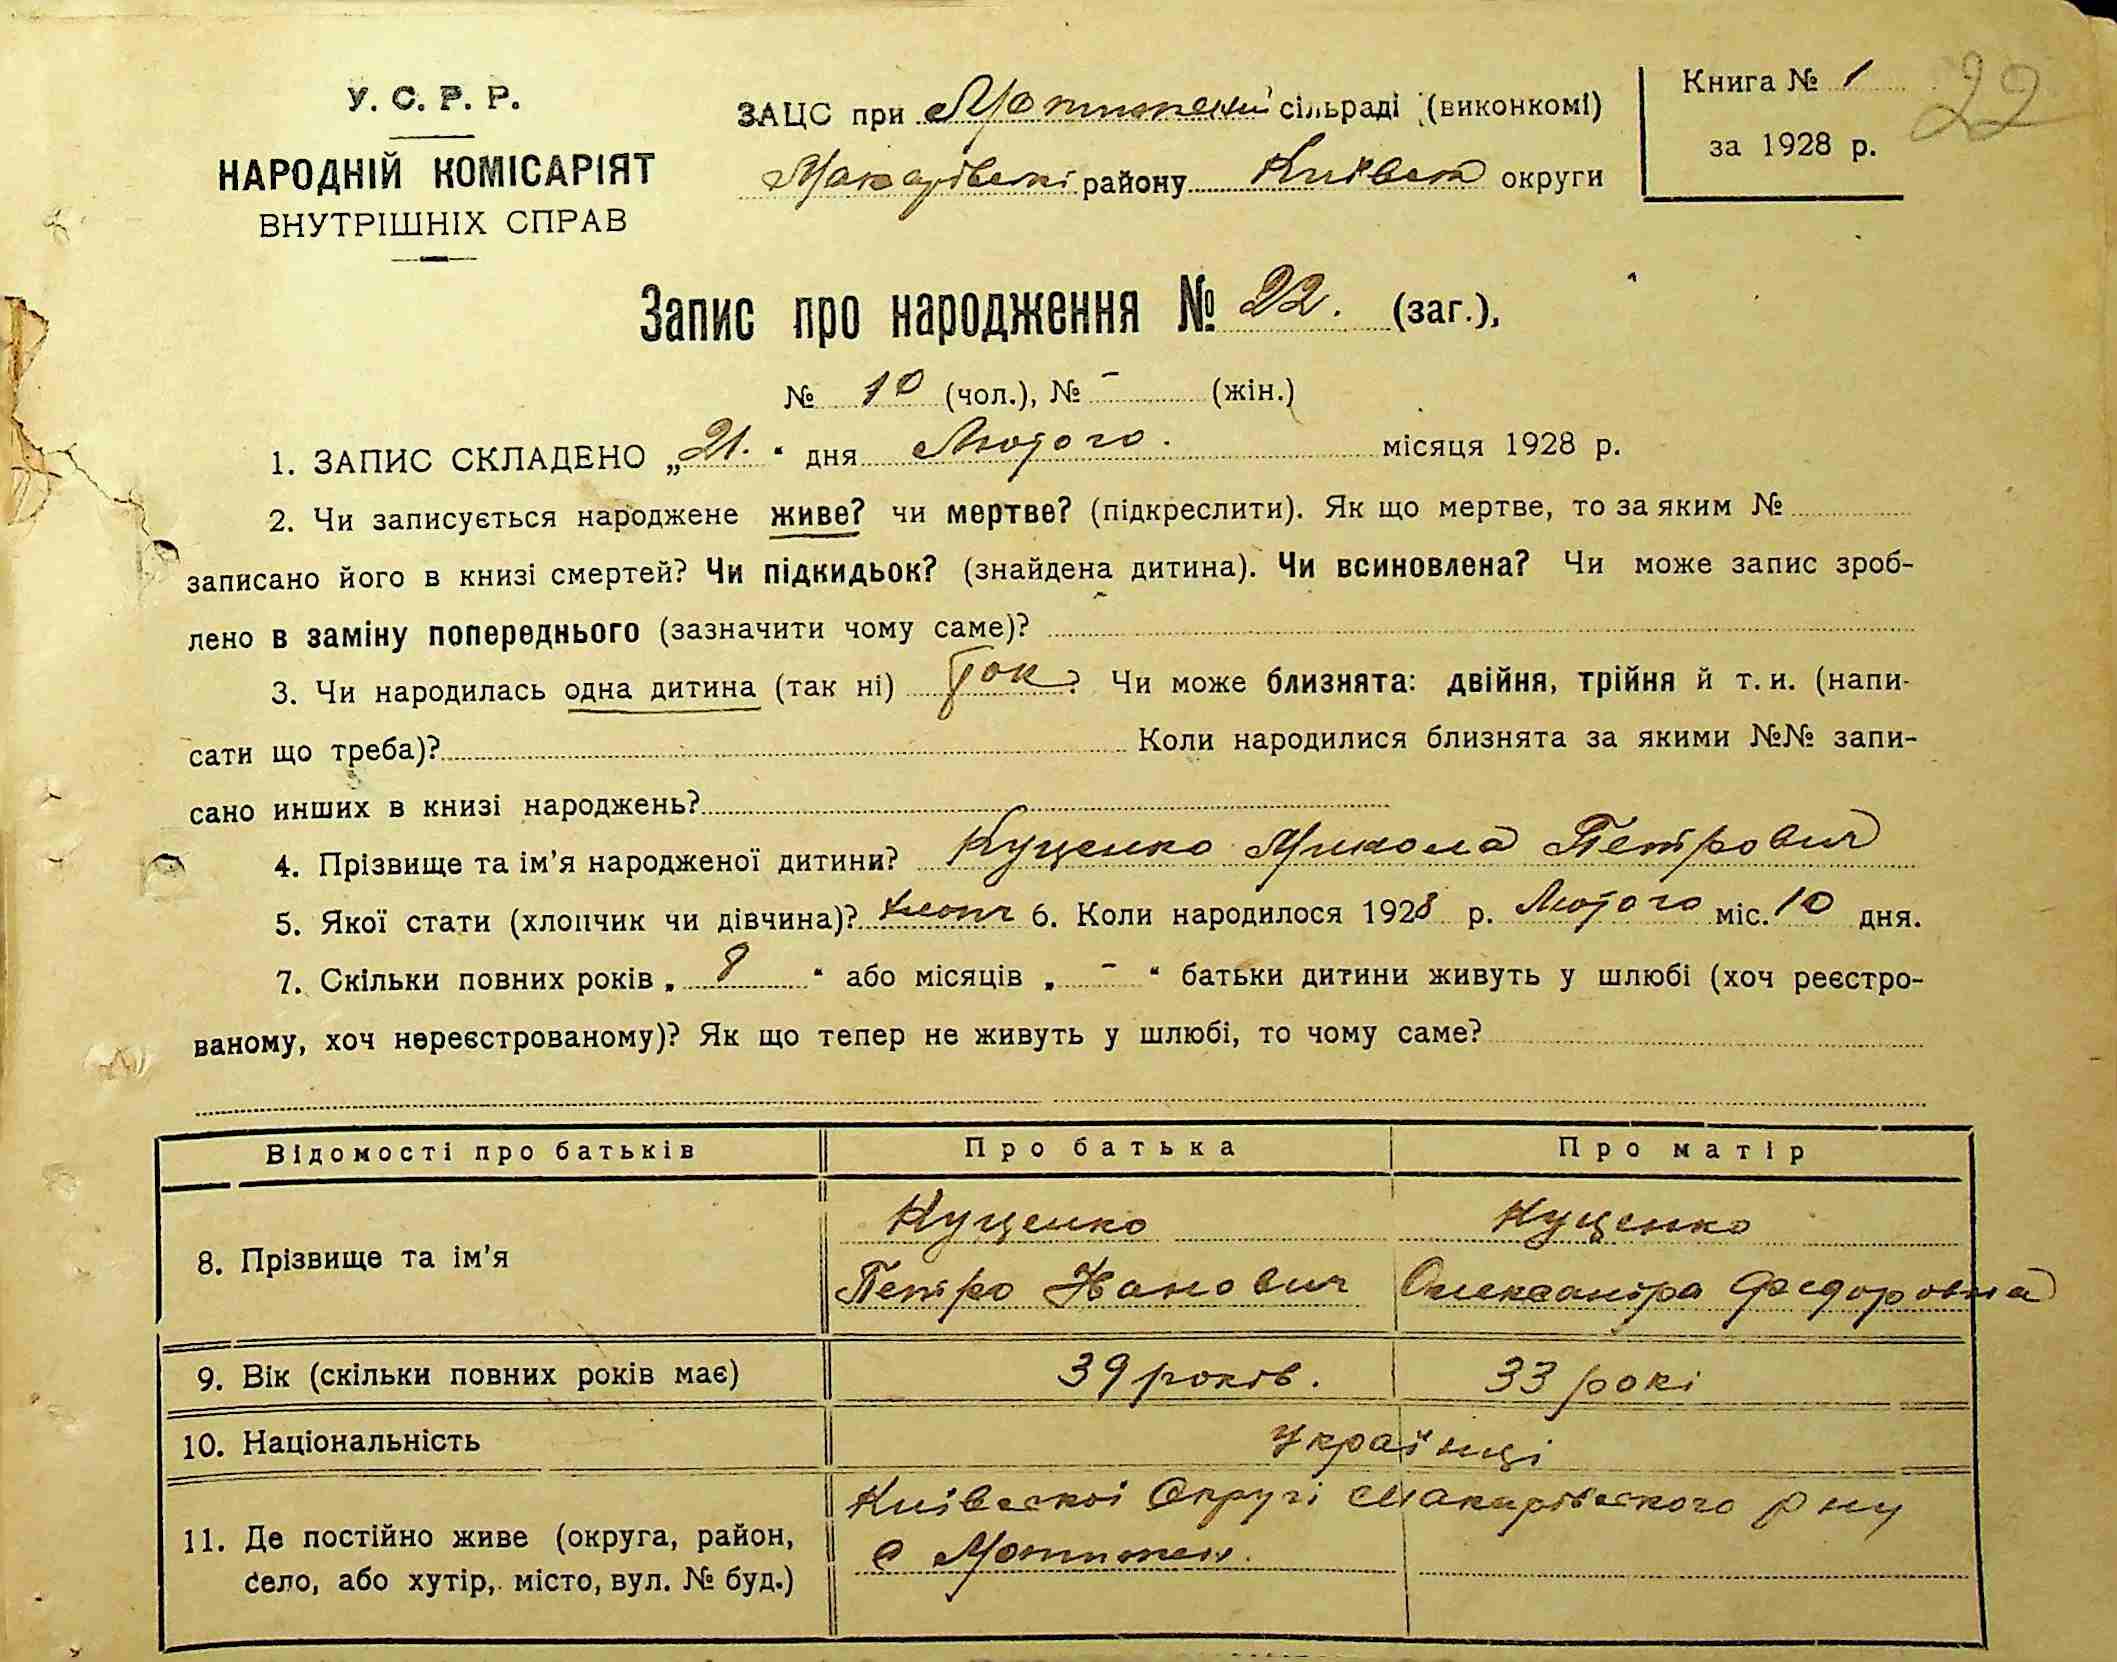 У. С. Р. Р.
НАРОДНІЙ КОМІСАРІЯТ
ВНУТРІШНІХ СПРАВ
ЗАЦС при сільраді (виконкомі)
Макарівскі району округи
Книга № 1
за 1928 р.
22
Запис про народження № 22. (заг.),
№ 10 (чол.), № - (жін.)
1. ЗАПИС СКЛАДЕНО „21.“ дня Лютого. місяця 1928 р.
2. Чи записується народжене живе? чи мертве? (підкреслити). Як що мертве, то за яким №
записано його в книзі смертей? Чи підкидьок? (знайдена дитина). Чи всиновлена? Чи може запис зроб-
лено в заміну попереднього (зазначити чому саме)?
3. Чи народилась одна дитина (так ні) Так? Чи може близнята: двійня, трійня й т. и. (напи-
сати що треба)? Коли народилися близнята за якими №№ запи-
сано инших в книзі народжень?
4. Прізвище та ім'я народженої дитини? Куценко Микола Петрович
5. Якої стати (хлопчик чи дівчина)? хлопч 6. Коли народилося 1928 р. Лютого міс. 10 дня.
7. Скільки повних років „ 8 “ або місяців „ - “ батьки дитини живуть у шлюбі (хоч реєстро-
ваному, хоч нереєстрованому)? Як що тепер не живуть у шлюбі, то чому саме?
Відомості про батьків Про батька Про матір
8. Прізвище та ім'я
Куценко
Петро Иванович
Куценко
Олександра Федоровна
9. Вік (скільки повних років має) 39 років. 33 рокі
10. Національність Українці
11. Де постійно живе (округа, район,
село, або хутір, місто, вул. № буд.)
Київскої Округі Макарівского р ну
с